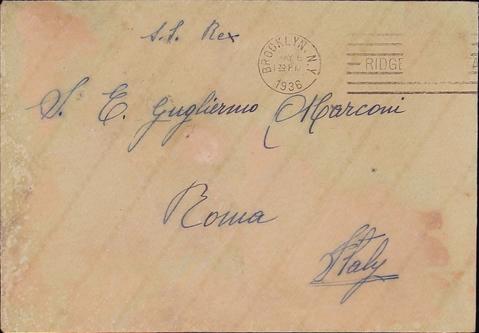 S.S. Rex
BROOKLYN, N.Y.
1936
RIDGE
S. E. Gugliermo Marconi
Roma
Italy